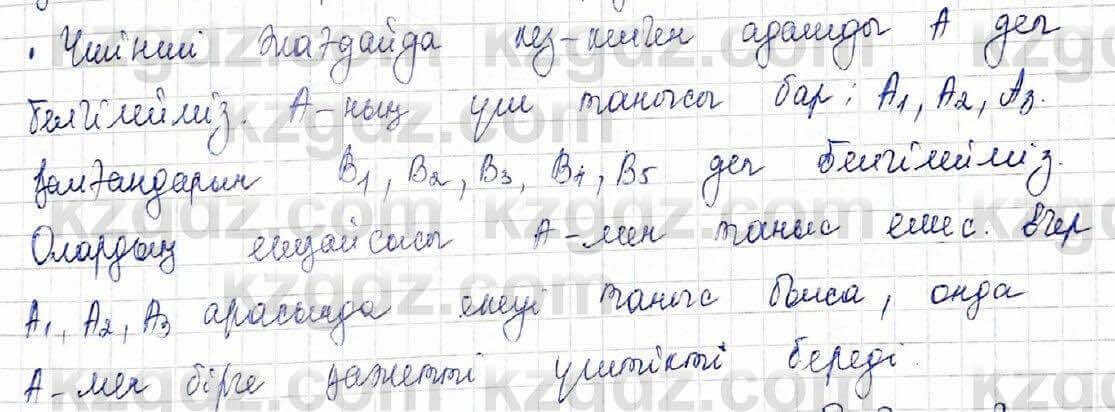 · Үшінші жағдайда кез-келген адамды А деп
белгілейміз. А-ның үш танысы бар: А1, А2, А3.
Қалғандарын В1, В2, В3, В4, В5 деп белгілейміз.
Олардың ешқайсысы А-мен таныс емес. Егер
А1, А2, А3 арасында екеуі таныс болса, онда
А-мен бірге қажетті үштікті береді.